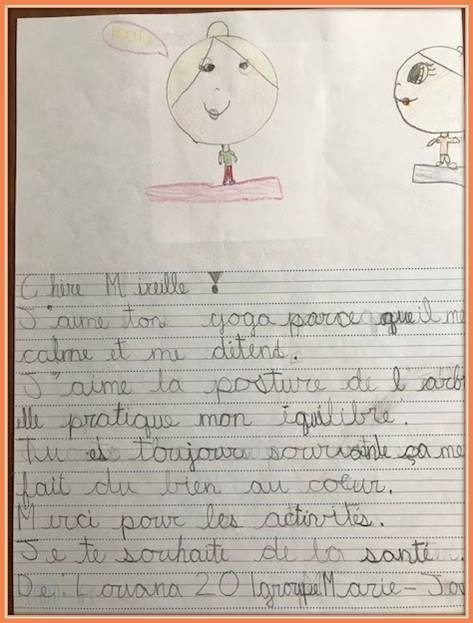 Chère Mireille !
J'aime ton yoga parce que il me
calme et me détend.
J'aime la posture de l'arb
elle pratique mon iquilibre.
Tu es toujour souriante ça me
fait du bien au coeur.
Merci pour les activités.
Je te souhaite de la santé
De: Louana 201 groupe Marie-Jo